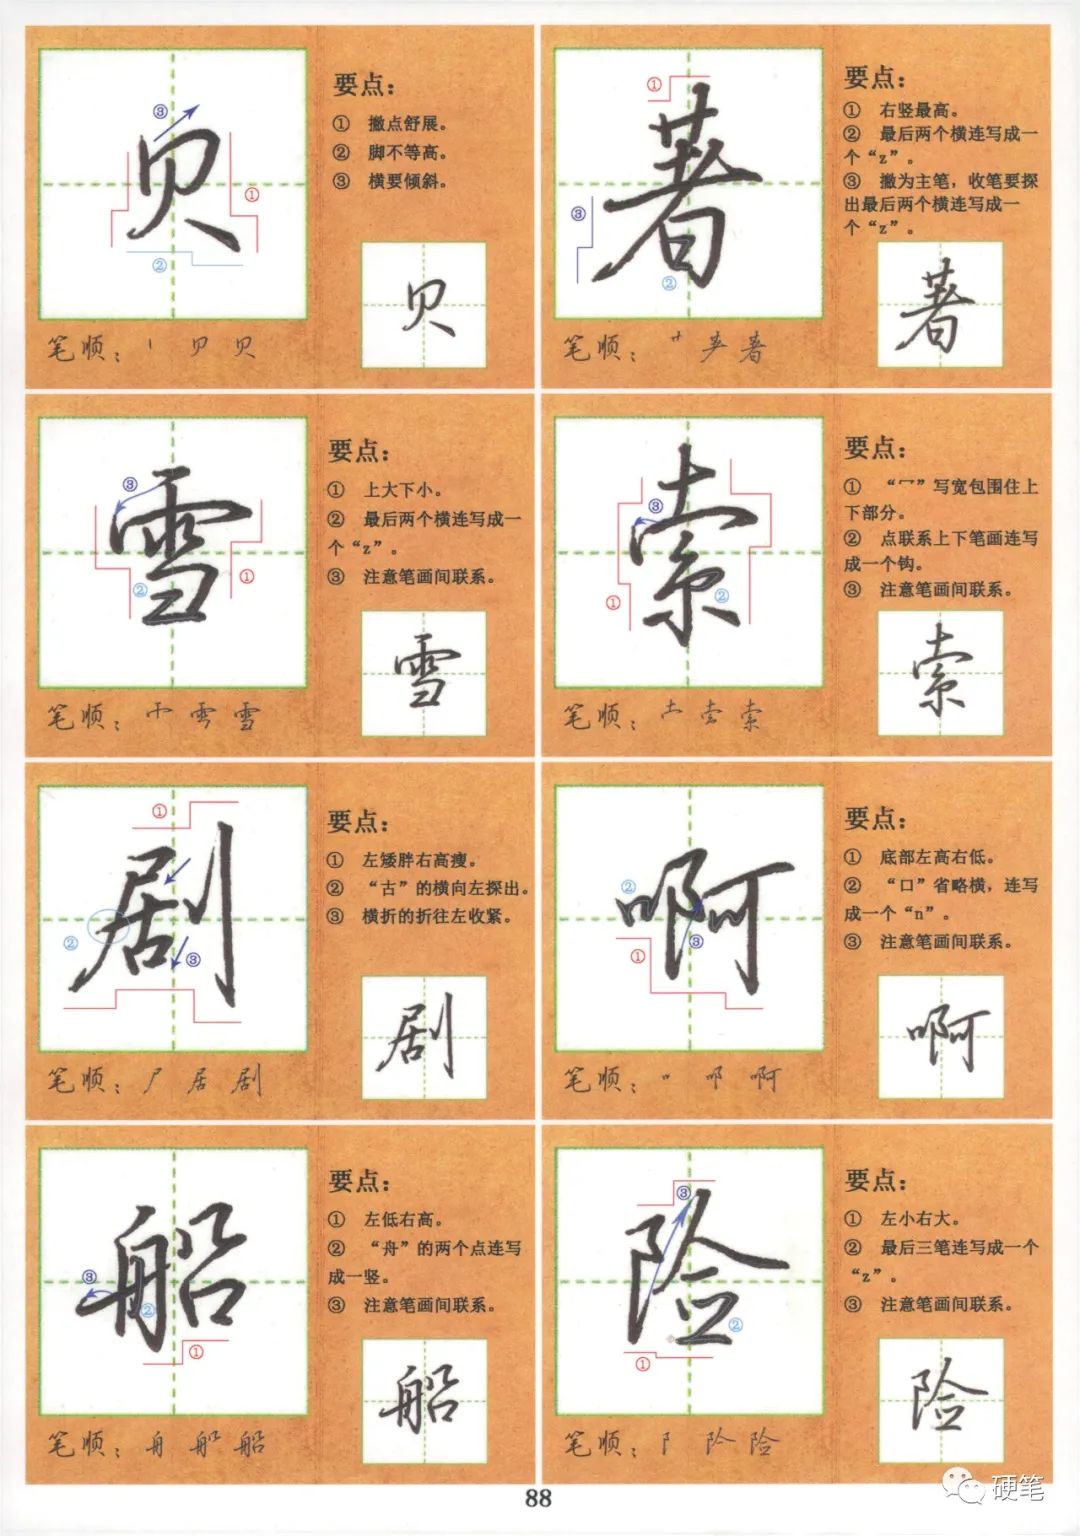 贝
要点：
① 撇点舒展。
② 脚不等高。
③ 横要倾斜。
③
①
②
贝
笔顺：丨 贝 贝
著
要点：
① 右竖最高。
② 最后两个横连写成一
个“z”。
③ 撇为主笔，收笔要探
出最后两个横连写成一
个“z”。
①
③
②
著
笔顺：艹 著
雪
要点：
① 上大下小。
② 最后两个横连写成一
个“z”。
③ 注意笔画间联系。
③
②
①
雪
笔顺：雪
索
要点：
① “冖”写宽包围住上
下部分。
② 点联系上下笔画连写
成一个钩。
③ 注意笔画间联系。
③
①
②
索
笔顺：索
剧
要点：
① 左矮胖右高瘦。
② “古”的横向左探出。
③ 横折的折往左收紧。
①
②
③
剧
笔顺：尸 居 剧
啊
要点：
① 底部左高右低。
② “口”省略横，连写
成一个“n”。
③ 注意笔画间联系。
②
①
③
啊
笔顺：啊
船
要点：
① 左低右高。
② “舟”的两个点连写
成一竖。
③ 注意笔画间联系。
③
②
①
船
笔顺：舟 船 船
险
要点：
① 左小右大。
② 最后三笔连写成一个
“z”。
③ 注意笔画间联系。
③
②
①
险
笔顺：阝 险 险
88
硬笔